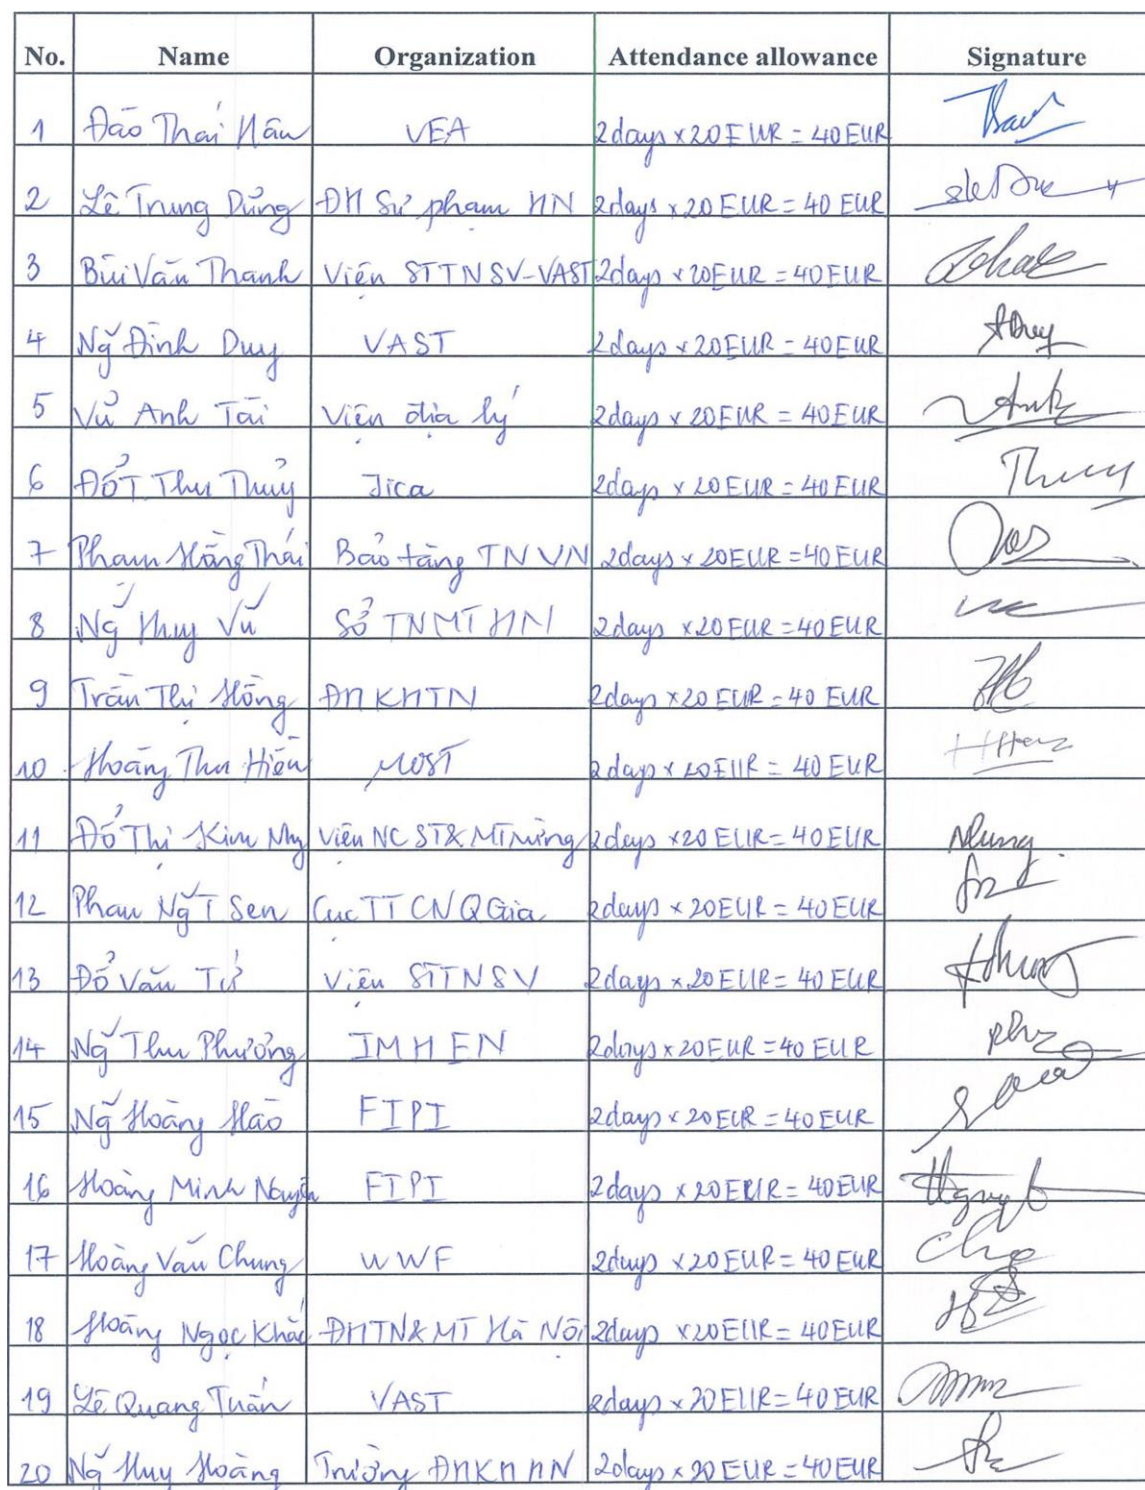 No. Name Organization Attendance allowance Signature
1 Đào Thái Hân VEA 2days x 20EUR = 40EUR
2 Lê Trung Dũng ĐH Sư phạm HN 2days x 20 EUR = 40 EUR
3 Bùi Văn Thanh Viện STTNSV-VAST 2days x 20EUR = 40EUR
4 Ng̃ Đình Duy VAST 2days x 20EUR = 40EUR
5 Vũ Anh Tài Viện địa lý 2days x 20EUR = 40EUR
6 Đỗ T Thu Thủy Jica 2days x 20EUR = 40EUR Thuy
7 Phạm Hồng Thái Bảo tàng TNVN 2days x 20EUR = 40EUR
8 Ng̃ Huy Vũ Sở TNMT HN 2days x 20EUR = 40EUR
9 Trần Thị Hồng ĐHKHTN 2days x 20 EUR = 40 EUR
10 Hoàng Thu Hiền MOST 2days x 20EUR = 40 EUR
11 Đỗ Thị Kim Viện NC ST& MT rừng 2days x 20 EUR = 40EUR Nhung
12 Phan Ng̃ T Sen Cục TT CN QGia 2days x 20EUR = 40EUR
13 Đỗ Văn Tứ Viện STTNSV 2days x 20EUR = 40EUR
14 Ng̃ Thu Phương IMHEN 2days x 20EUR = 40 EUR
15 Ng̃ Hoàng Hảo FIPI 2days x 20EUR = 40EUR
16 Hoàng Minh FIPI 2days x 20EUR = 40EUR
17 Hoàng Văn Chung WWF 2days x 20EUR = 40EUR
18 Hoàng Ngọc Khắc ĐHTN&MT Hà Nội 2days x 20EUR = 40EUR
19 Lê Quang Tuấn VAST 2days x 20EUR = 40EUR
20 Ng̃ Huy Hoàng Trường ĐHKHHN 2days x 20EUR = 40EUR